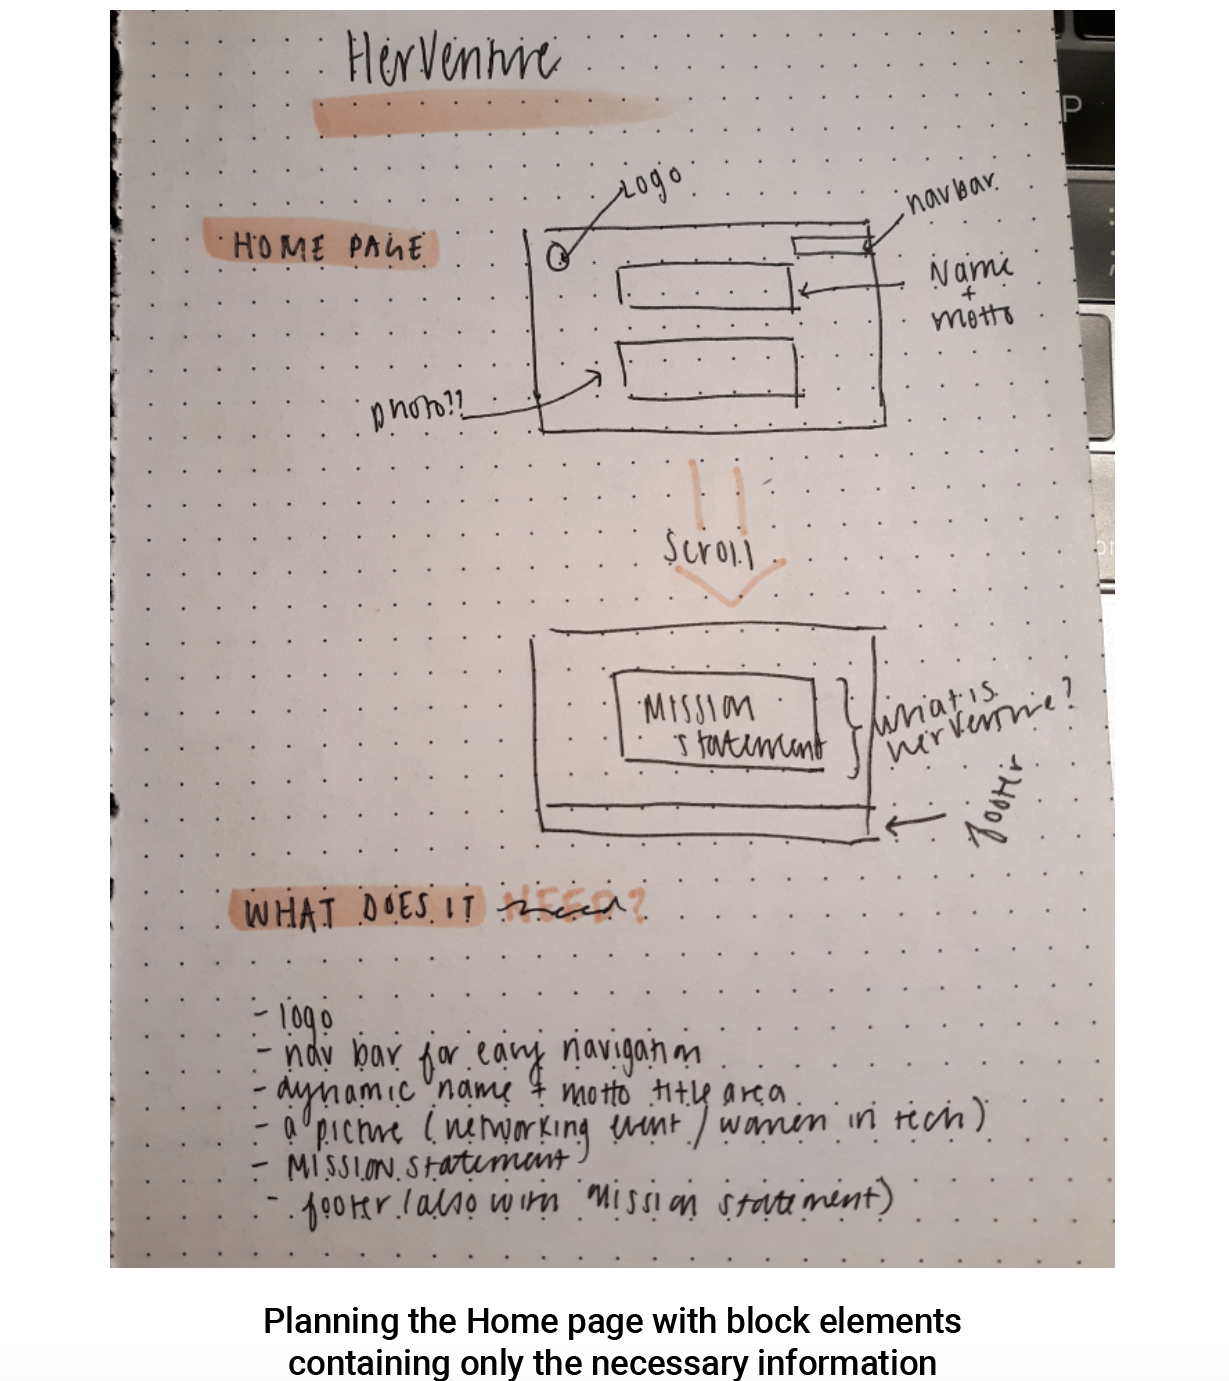 HerVenture
P
Logo
navbar
HOME PAGE
Name
+
motto
photo!!
Scroll
Mission
statement
what is
herventure?
footer
WHAT DOES IT need NEED?
- logo
- nav bar for easy navigation
- dynamic name + motto title area
- a picture (networking event / women in tech)
- Mission statement
- footer (also with mission statement)
Planning the Home page with block elements
containing only the necessary information